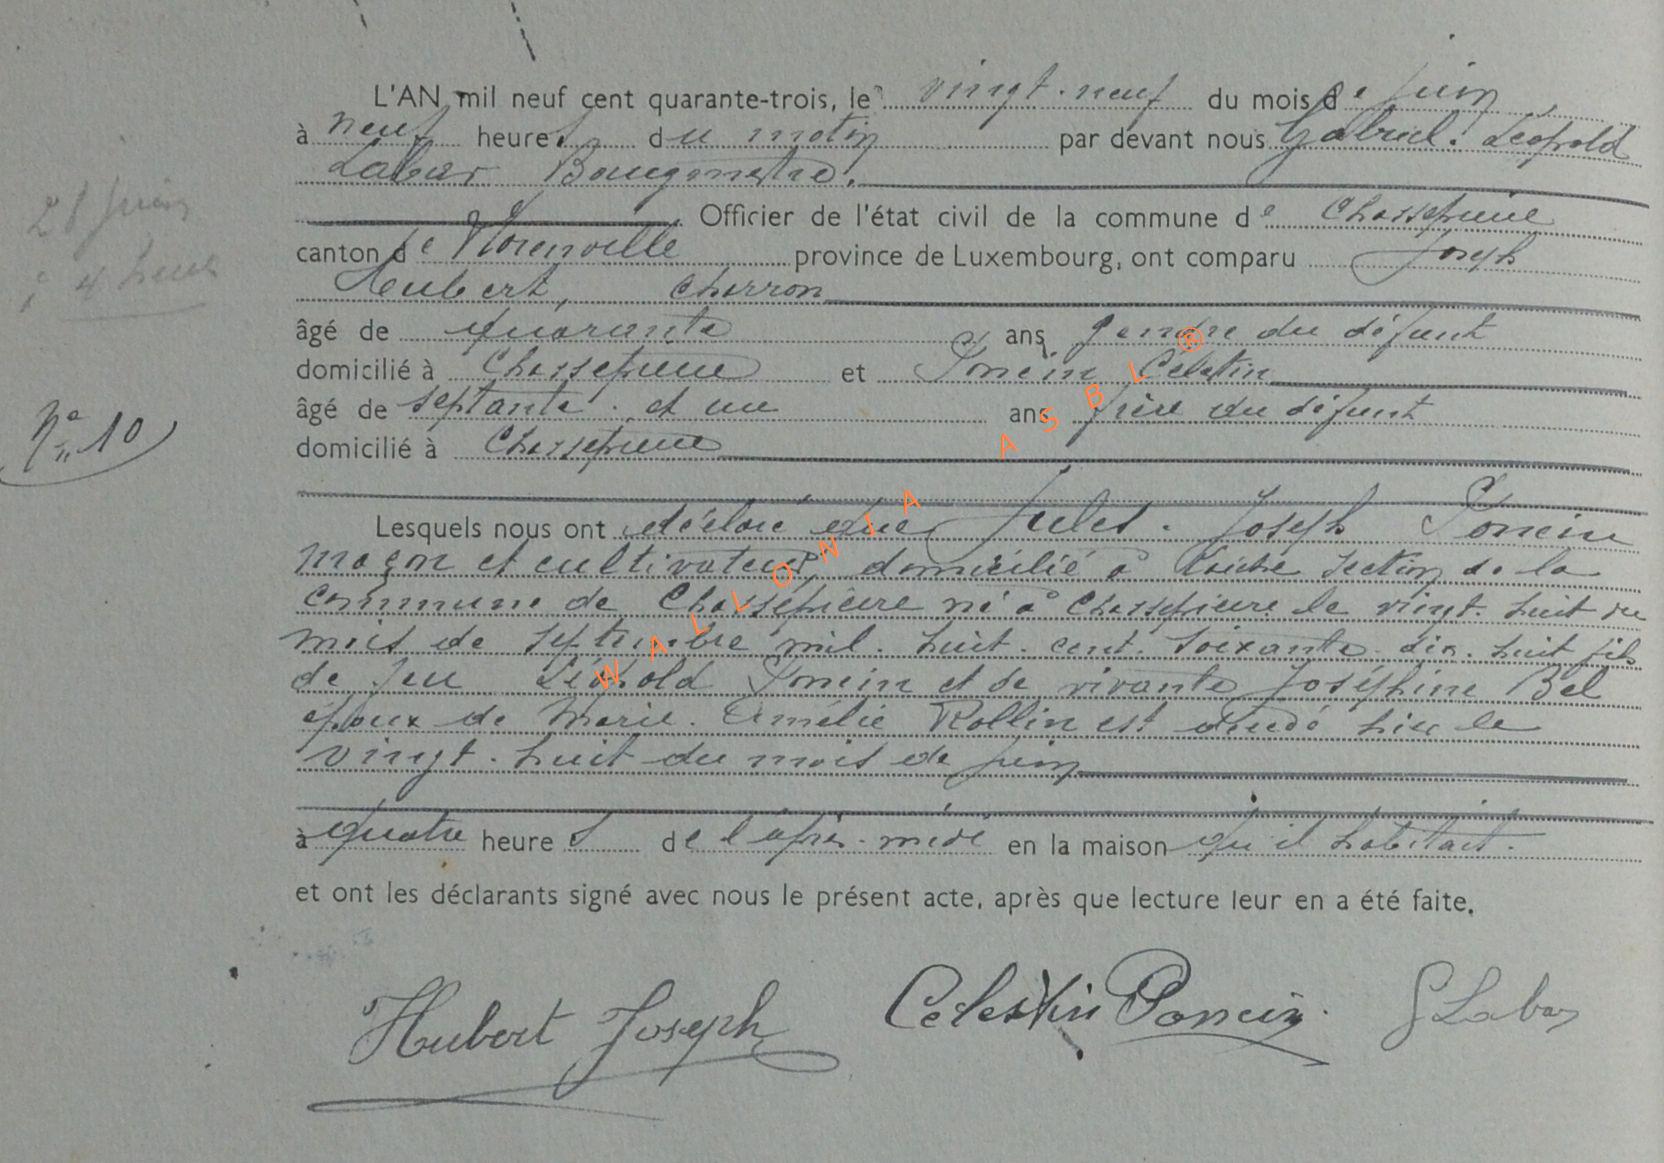 L'AN mil neuf cent quarante-trois, le vingt-neuf du mois de juin
à neuf heures du matin par devant nous Gabriel. Léopold
Labar Bourgmestre.
28 juin
Officier de l'état civil de la commune de Chassepierre
à 4 heures
canton de Florenville province de Luxembourg, ont comparu Joseph
Hubert, charron
âgé de quarante ans gendre du défunt
domicilié à Chassepierre et Poncin Célestin
N° 10
âgé de septante et un ans frère du défunt
domicilié à Chassepierre
Lesquels nous ont déclaré que Jules. Joseph Poncin
maçon et cultivateur domicilié à Laiche section de la
commune de Chassepierre né à Chassepierre le vingt-huit du
mois de septembre mil-huit-cent-soixante-dix-huit fils
de feu Léopold Poncin et de vivante Joséphine Bel
époux de Marie. Amélie Rollin est décédé hier le
vingt-huit du mois de juin
à quatre heures de l'après-midi en la maison qu'il habitait.
et ont les déclarants signé avec nous le présent acte, après que lecture leur en a été faite.
Hubert Joseph Celestin Poncin. G Labar
WALLONIA ASBL ®